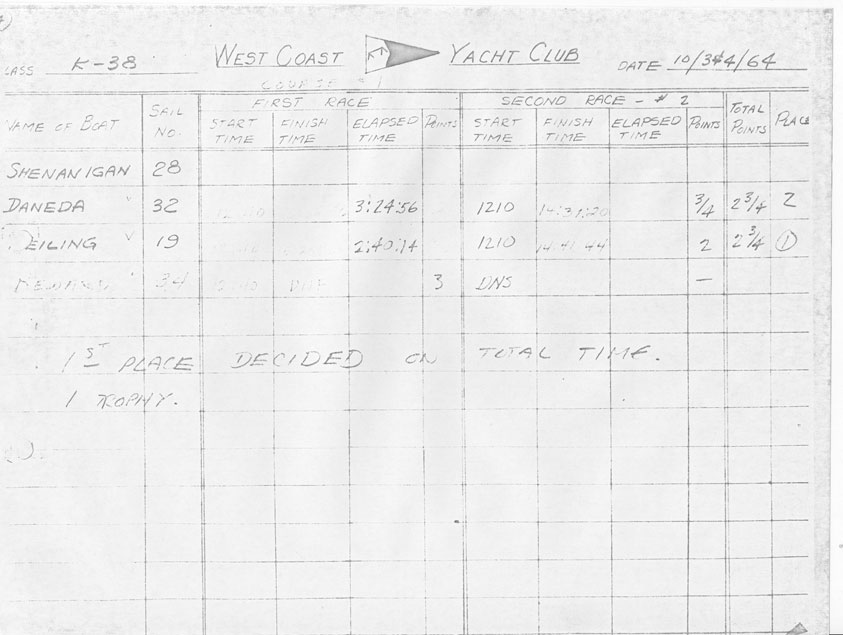 CLASS K-38 WEST COAST YACHT CLUB DATE 10/3&4/64
FIRST RACE SECOND RACE - # 2
NAME OF BOAT SAIL NO. START TIME FINISH TIME ELAPSED TIME POINTS START TIME FINISH TIME ELAPSED TIME POINTS TOTAL POINTS PLACE
SHENANIGAN 28
DANEDA 32 3:24:56 1210 14:31:20 3/4 2 3/4 2
EILING 19 2:40:14 1210 14:41:44 2 2 3/4 1
34 DNF 3 DNS —
1ST PLACE DECIDED ON TOTAL TIME.
1 TROPHY.